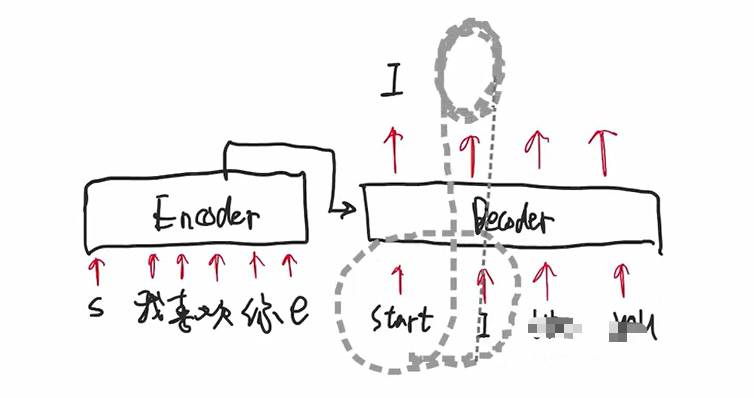 I
Encoder
Decoder
s 我喜欢你 e
start I